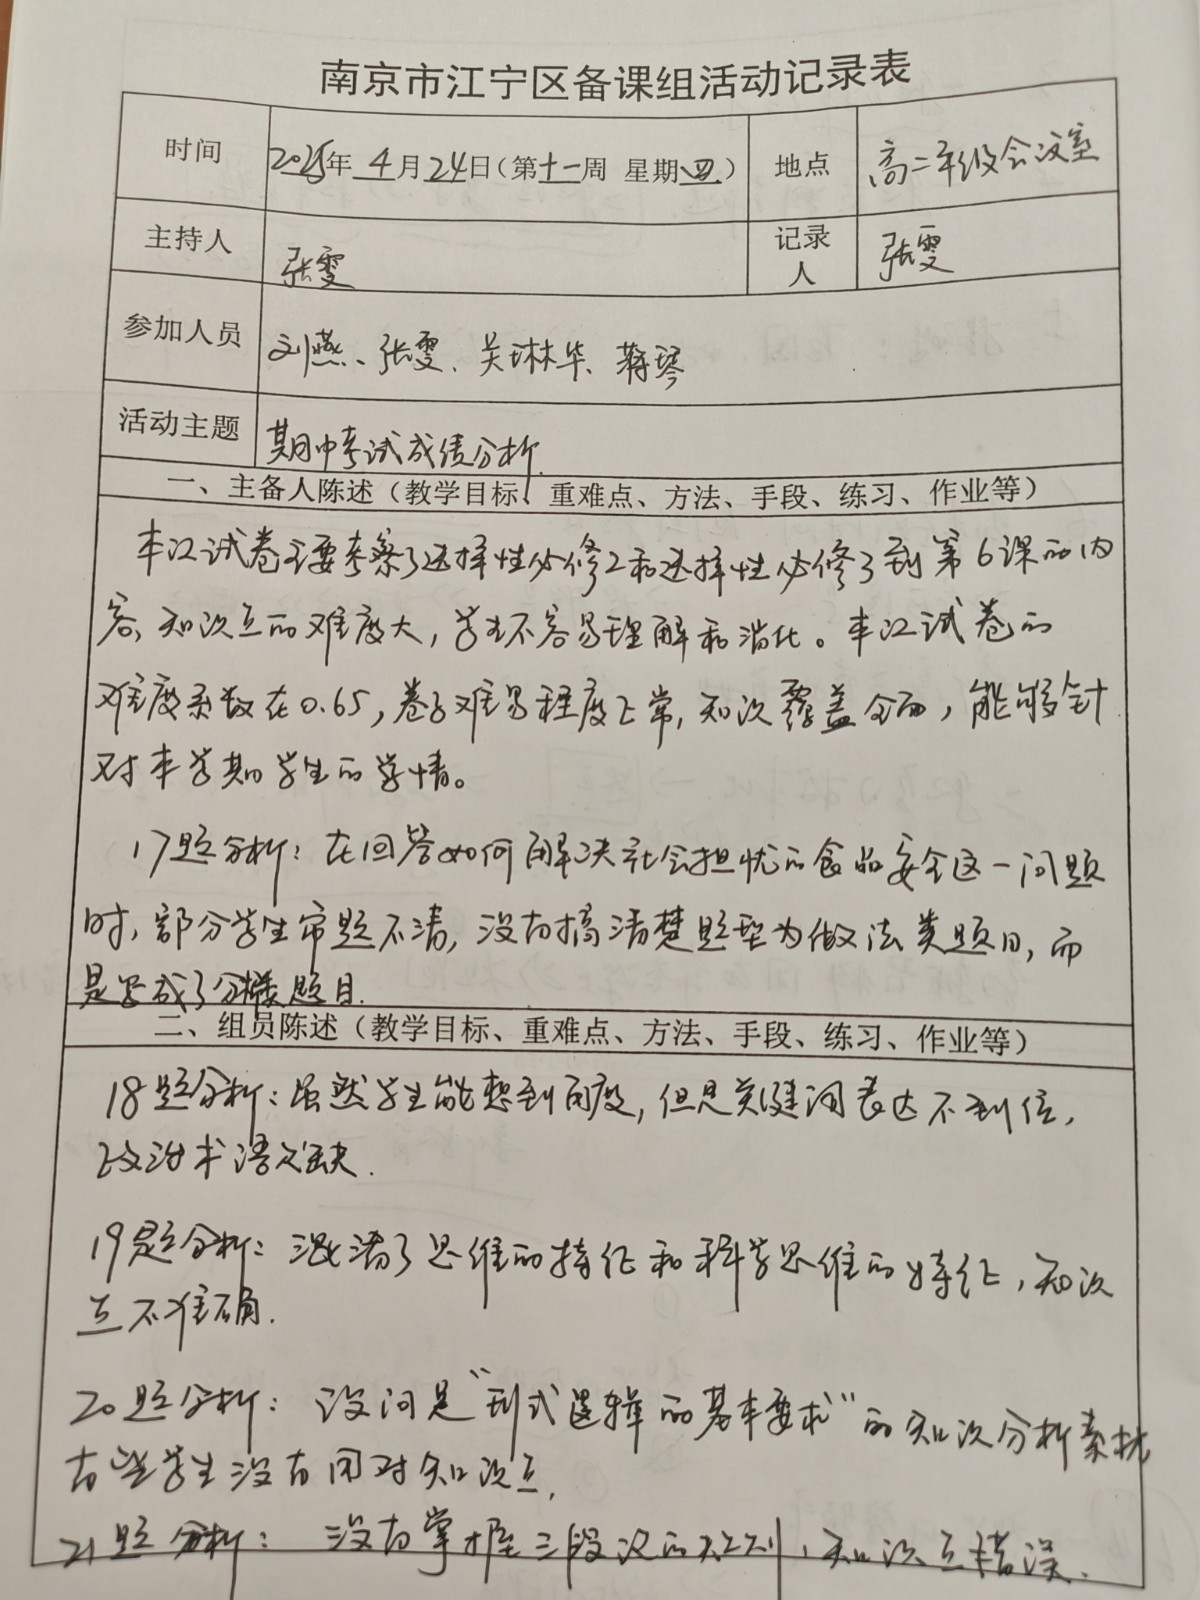 南京市江宁区备课组活动记录表
时间 2025年 4月24日(第十一周 星期四) 地点 高二年级会议室
主持人 张雯 记录人 张雯
参加人员 刘燕、张雯、关琳华、蒋琴
活动主题 期中考试成绩分析
一、主备人陈述(教学目标、重难点、方法、手段、练习、作业等)
本次试卷主要考察了选择性必修2和选择性必修3到第6课的内
容,知识点的难度大,学生不容易理解和消化。本次试卷的
难度系数在0.65,卷子难易程度正常,知识覆盖全面,能够针
对本学期学生的学情。
17题分析:在回答如何解决社会担忧的食品安全这一问题
时,部分学生审题不清,没有搞清楚题型为做法类题目,而
是写成了分析类题目.
二、组员陈述(教学目标、重难点、方法、手段、练习、作业等)
18题分析:虽然学生能想到角度,但是关键词表达不到位,
政治术语欠缺.
19题分析:混淆了思维的特征和科学思维的特征,知识
点不准确.
20题分析:设问是“形式逻辑的基本要求”的知识分析素材
有些学生没有用对知识点.
21题分析:没有掌握三段论的规则,知识点错误.